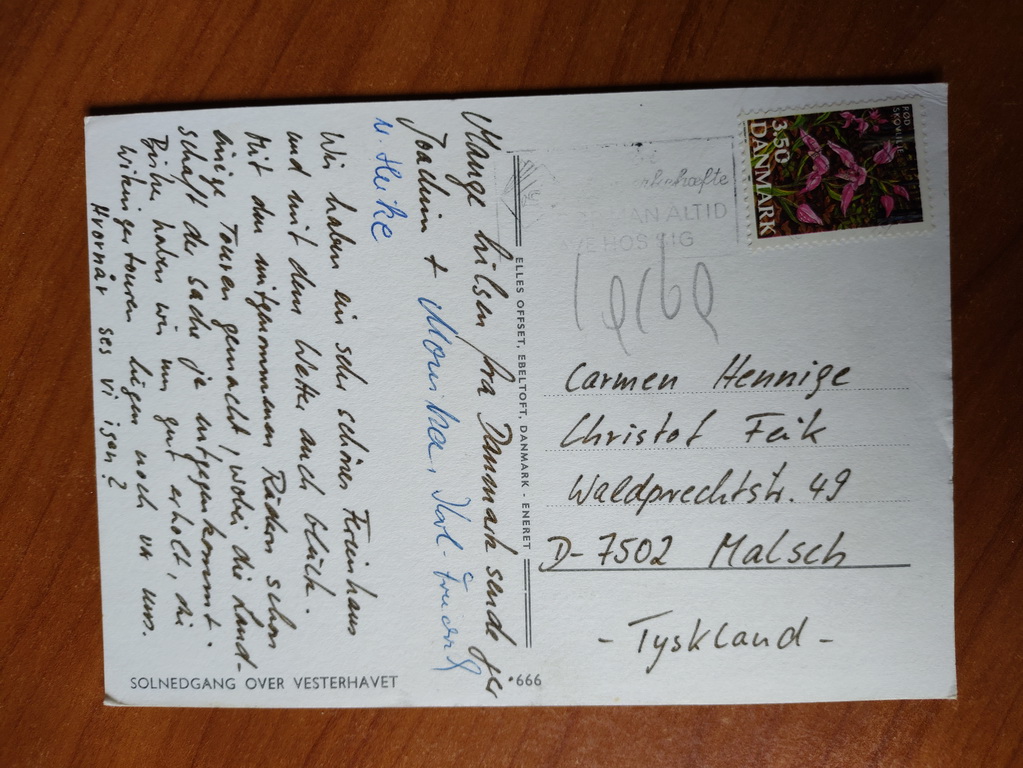 Mange hilsen fra Danmark sender
Joachim + Monika, Karl-Friedrich
u. Heike
Wir haben ein sehr schönes Ferienhaus
und mit dem Wetter auch Glück.
Mit den mitgenommenen Rädern schon
einige Touren gemacht, wobei die Land-
schaft der Sache ja entgegenkommt.
Bisher haben wir uns gut erholt, die
Wikingertouren liegen noch vor uns.
Hvornår ses vi igen?
SOLNEDGANG OVER VESTERHAVET
666
ELLES OFFSET, EBELTOFT, DANMARK - ENERET
RØD
SKOVLILJE
350
DANMARK
MAN ALTID
HOS SIG
Carmen Hennige
Christof Feik
Waldprechtstr. 49
D-7502 Malsch
- Tyskland -